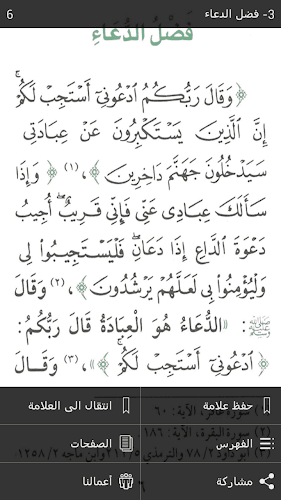 3- فضل الدعاء
6
فَضْلُ الدُّعَاءِ
﴿وَقَالَ رَبُّكُمُ ٱدْعُونِىٓ أَسْتَجِبْ لَكُمْ ۚ
إِنَّ ٱلَّذِينَ يَسْتَكْبِرُونَ عَنْ عِبَادَتِى
سَيَدْخُلُونَ جَهَنَّمَ دَاخِرِينَ﴾،(١) ﴿وَإِذَا
سَأَلَكَ عِبَادِى عَنِّى فَإِنِّى قَرِيبٌ ۖ أُجِيبُ
دَعْوَةَ ٱلدَّاعِ إِذَا دَعَانِ ۖ فَلْيَسْتَجِيبُوا۟ لِى
وَلْيُؤْمِنُوا۟ بِى لَعَلَّهُمْ يَرْشُدُونَ﴾،(٢) وَقَالَ
ﷺ: «الدُّعَاءُ هُوَ الْعِبَادَةُ قَالَ رَبُّكُمْ:
﴿ٱدْعُونِىٓ أَسْتَجِبْ لَكُمْ ۚ﴾»،(٣) وَقَالَ
حفظ علامة
انتقال الى العلامة
الآية: ٦٠
الفهرس
الصفحات
سورة البقرة، الآية: ١٨٦
أبو داود ٢/ ٧٨ والترمذي
وابن ماجه ٢/ ١٢٥٨
مشاركة
أعمالنا